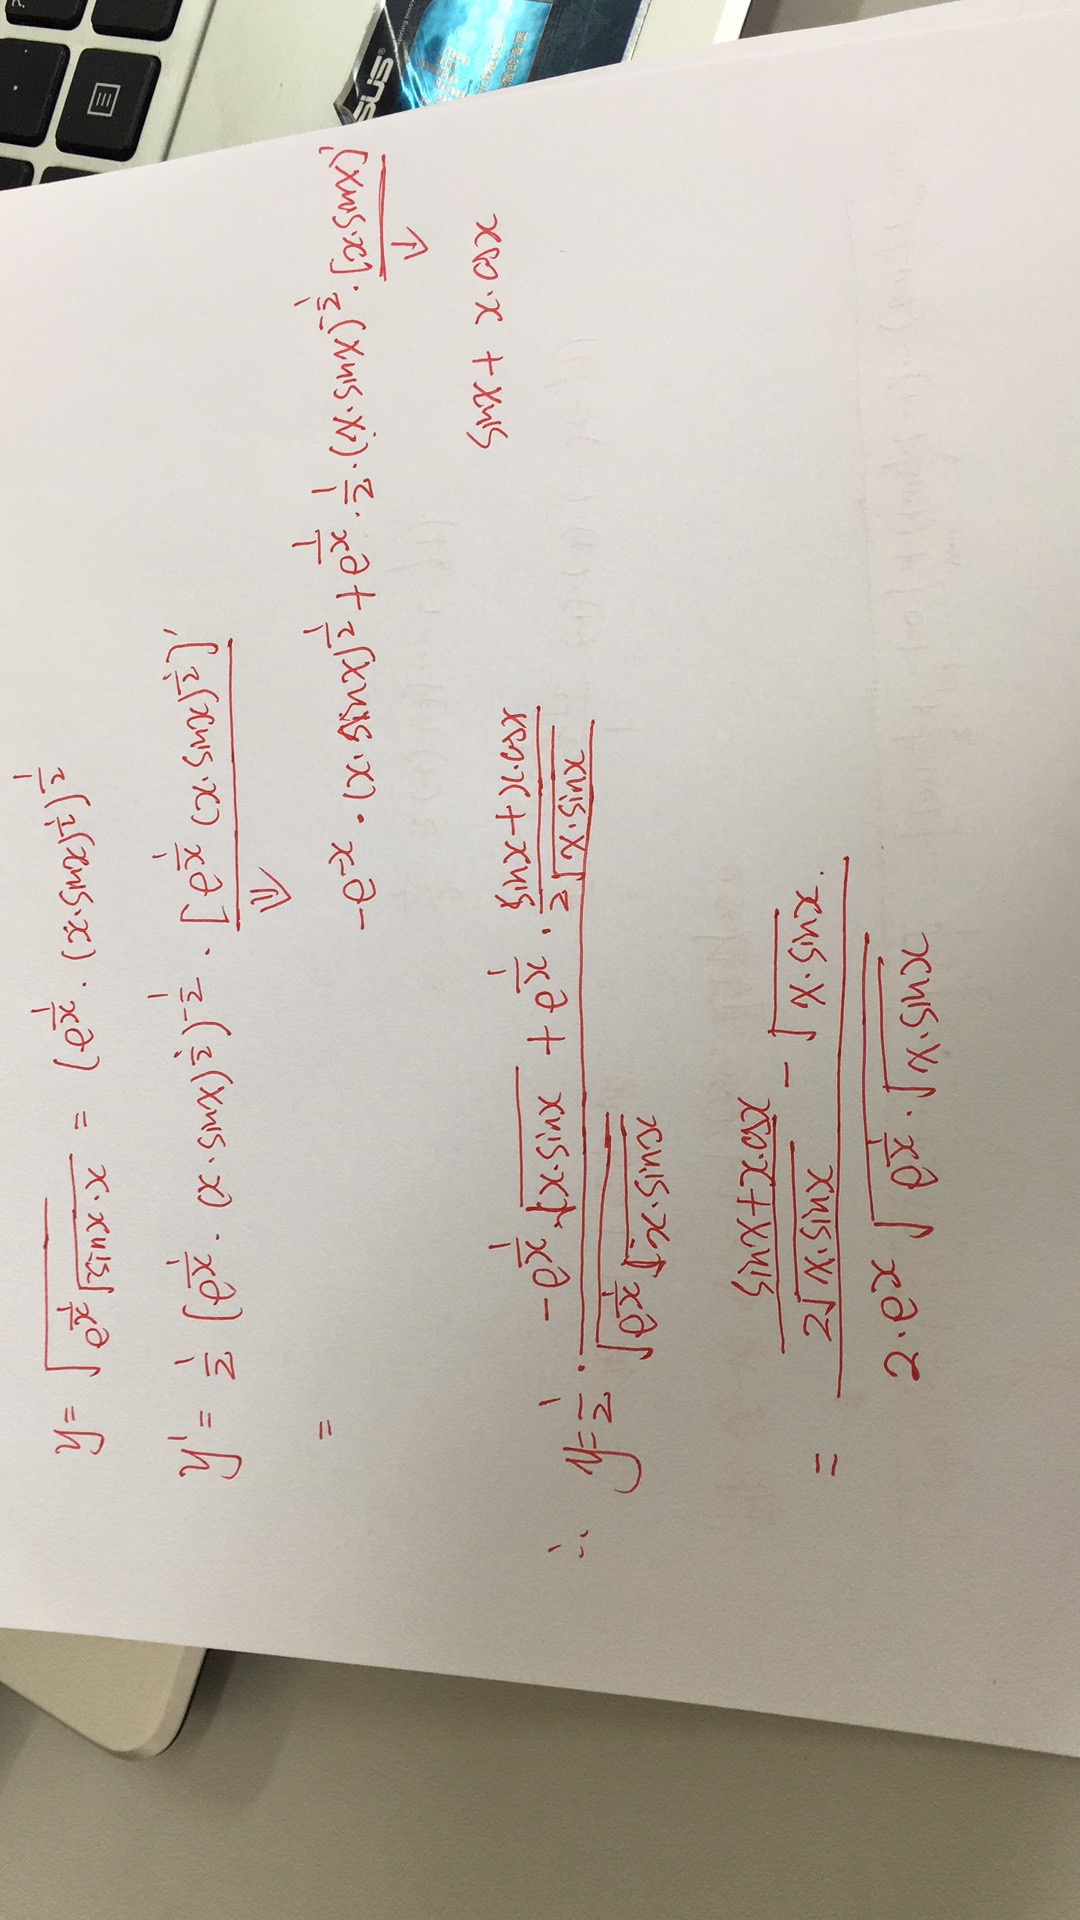 y = √(e^(1/x) √(sinx·x)) = (e^(1/x) · (x·sinx)^(1/2))^(1/2)
y' = 1/2 (e^(1/x) · (x·sinx)^(1/2))^(-1/2) · [e^(1/x) (x·sinx)^(1/2)]'
⇓
= -e^(-x) · (x·sinx)^(1/2) + e^(1/x) · 1/2 · (x·sinx)^(-1/2) · [x·sinx)'
↓
sinx + x·cosx
∴ y' = 1/2 · (-e^(1/x) · √(x·sinx) + e^(1/x) · (sinx + x·cosx)/(2√(x·sinx))) / √(e^(1/x) √(x·sinx))
= ((sinx + x·cosx)/(2√(x·sinx)) - √(x·sinx)) / (2·ex √(e^(1/x) · √(x·sinx)))
SUS®